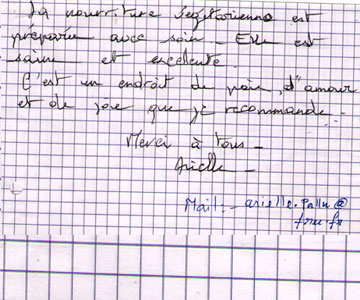 La nourriture végétarienne est
préparée avec soin. Elle est
saine et excelente.
C'est un endroit de paix, d'amour
et de joie que je recommande.
Merci à tous -
Arielle -
Mail : - arielle.
free.fr